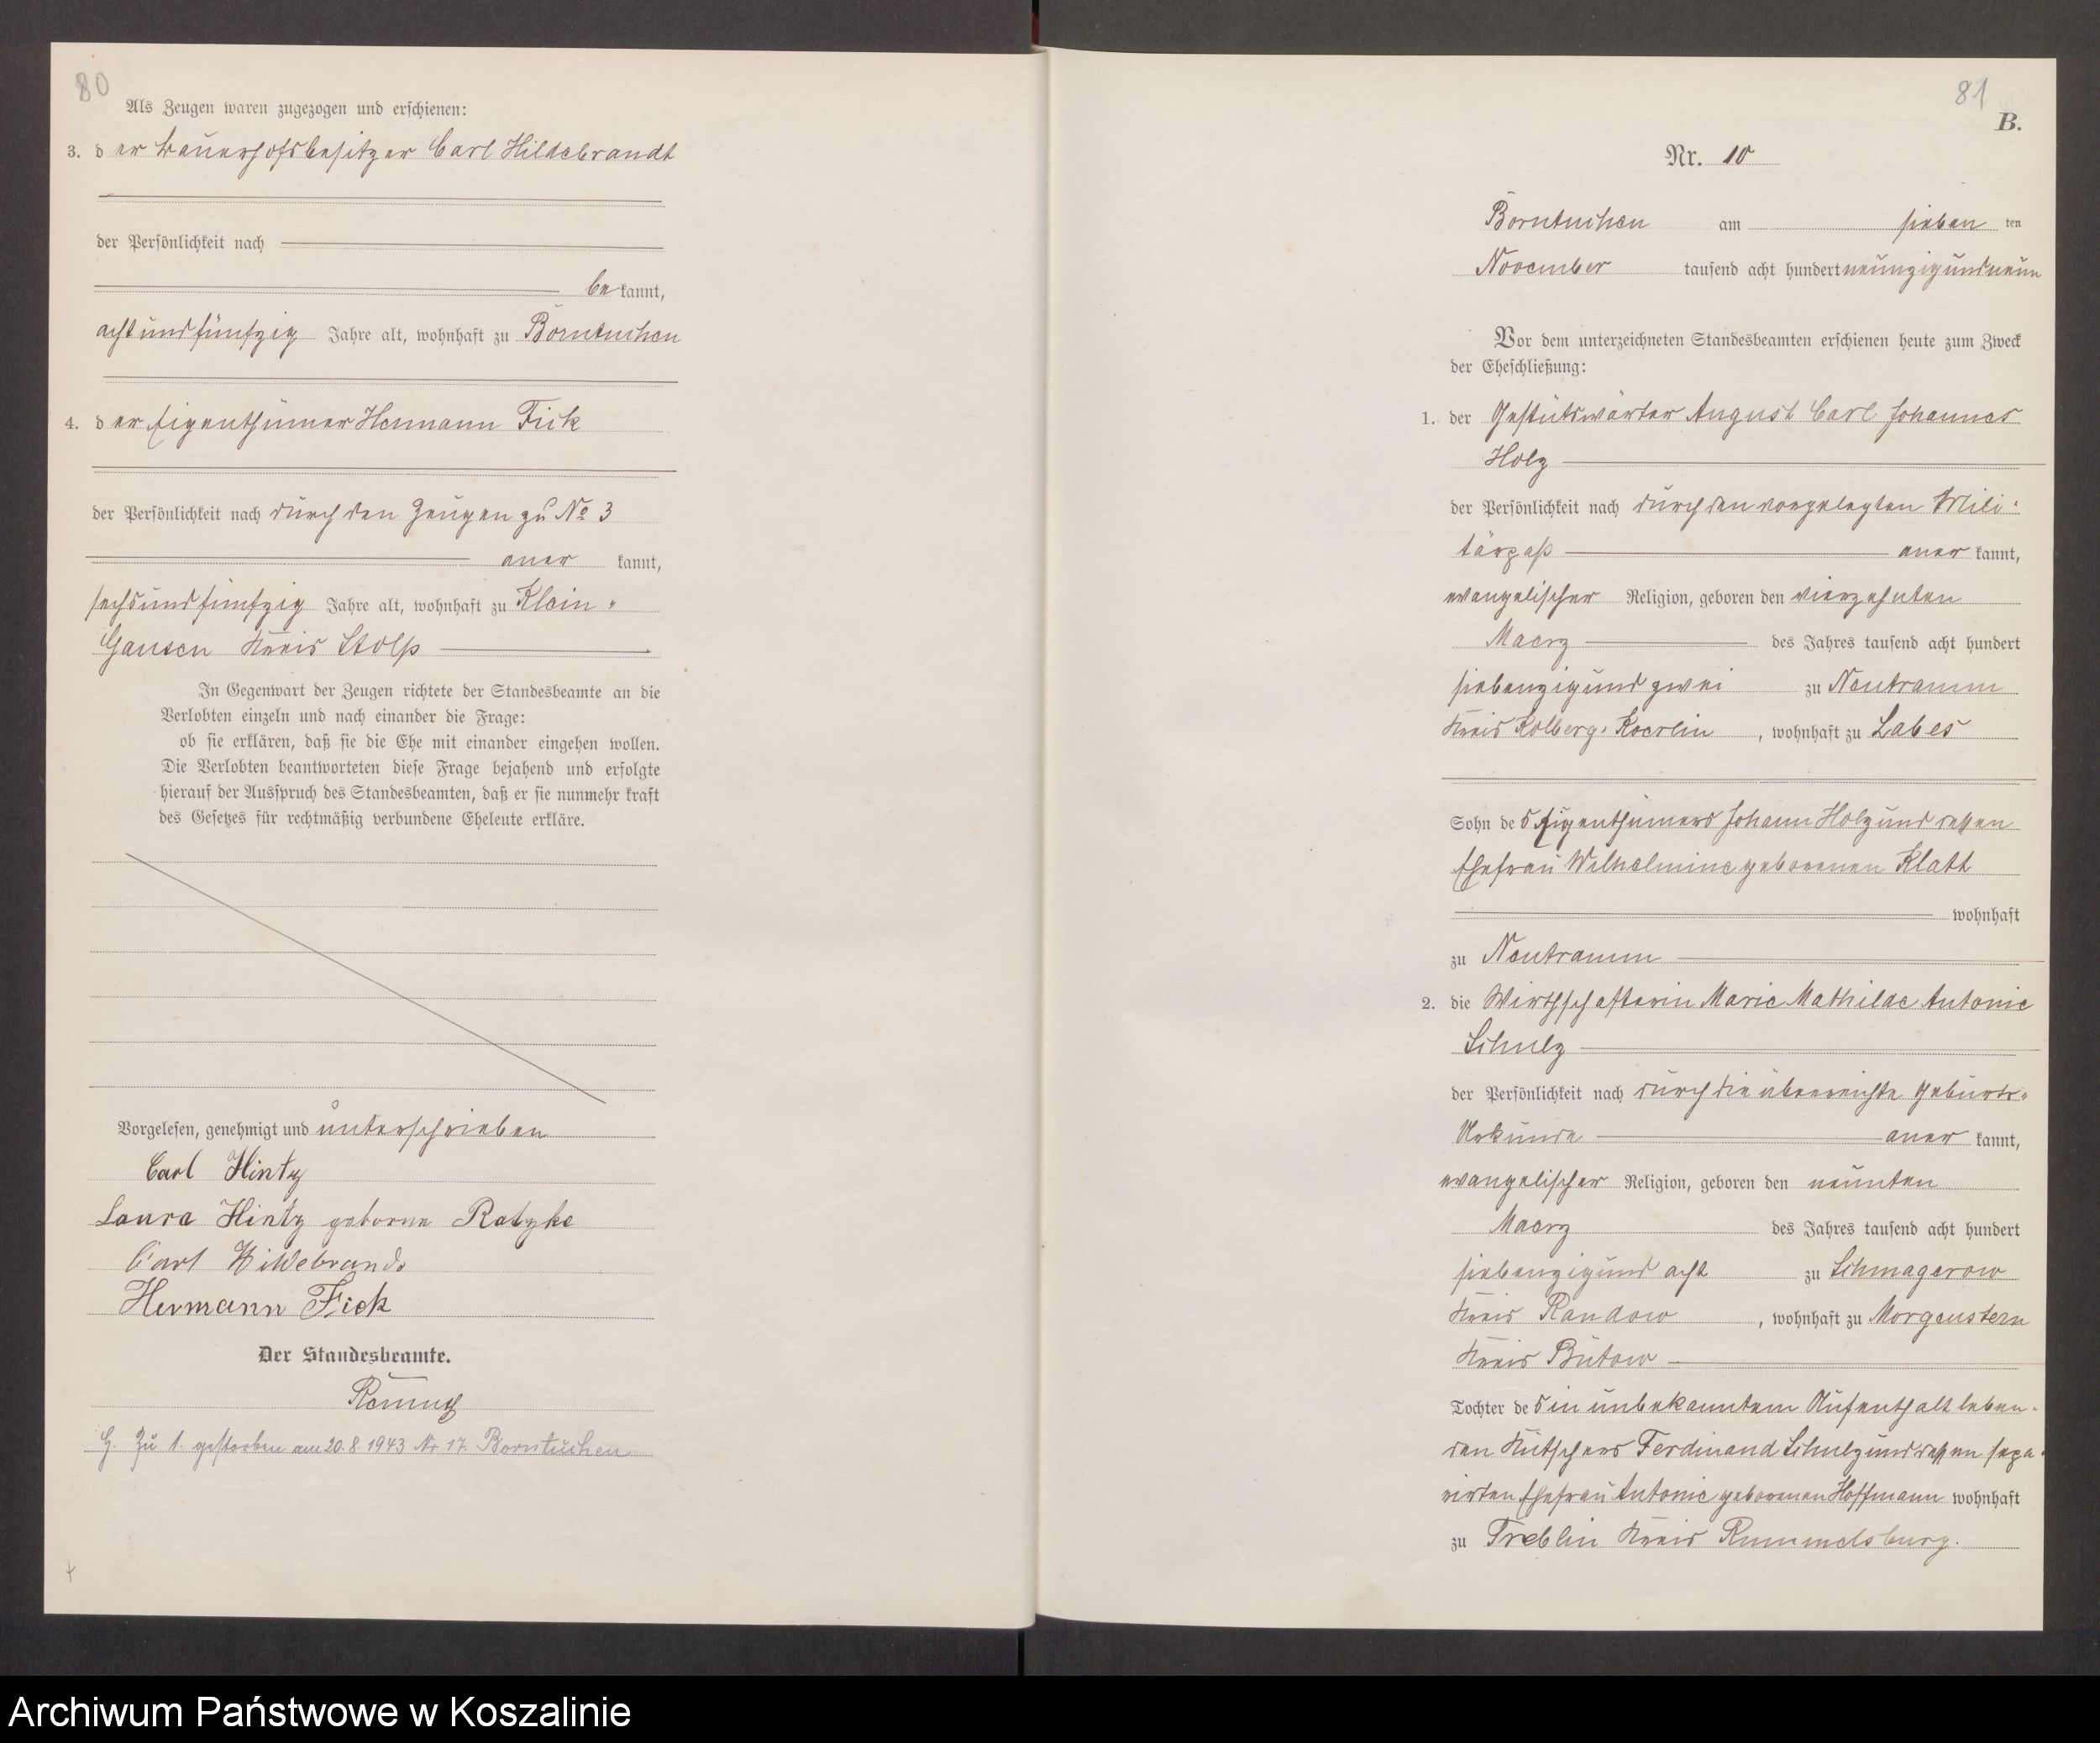 80
Als Zeugen waren zugezogen und erschienen:
3. der Bauerhofsbesitzer Carl Hildebrandt
der Persönlichkeit nach
bekannt,
achtundfünfzig Jahre alt, wohnhaft zu Borntuchen
4. der Eigenthümer Hermann Fick
der Persönlichkeit nach durch den Zeugen zu No 3
anerkannt,
sechsundfünfzig Jahre alt, wohnhaft zu Klein-
Gansen Kreis Stolp
In Gegenwart der Zeugen richtete der Standesbeamte an die
Verlobten einzeln und nach einander die Frage:
ob sie erklären, daß sie die Ehe mit einander eingehen wollen.
Die Verlobten beantworteten diese Frage bejahend und erfolgte
hierauf der Ausspruch des Standesbeamten, daß er sie nunmehr kraft
des Gesetzes für rechtmäßig verbundene Eheleute erkläre.
Vorgelesen, genehmigt und unterschrieben
Carl Hintz
Laura Hintz geborne Ratzke
Carl Hildebrandt
Hermann Fick
Der Standesbeamte.
G. Zu 1. gestorben am 20.8.1943 Nr 17 Borntuchen
81
B.
Nr. 10
Borntuchen am sieben ten
November tausend acht hundert neunzig und neun
Vor dem unterzeichneten Standesbeamten erschienen heute zum Zweck
der Eheschließung:
1. der Gestütswärter August Carl Johannes
Holz
der Persönlichkeit nach durch den vorgelegten Mili-
tärpaß anerkannt,
evangelischer Religion, geboren den vierzehnten
Maerz des Jahres tausend acht hundert
siebenzig und zwei zu Neutramm
Kreis Kolberg-Koerlin, wohnhaft zu Labes
Sohn des Eigenthümers Johann Holz und dessen
Ehefrau Wilhelmine geborenen Klatt
wohnhaft
zu Neutramm
2. die Wirthschafterin Marie Mathilde Antonie
Schulz
der Persönlichkeit nach durch die überreichte Geburts-
Urkunde anerkannt,
evangelischer Religion, geboren den neunten
Maerz des Jahres tausend acht hundert
siebenzig und acht zu Schmagerow
Kreis Randow, wohnhaft zu Morgenstern
Kreis Bütow
Tochter des in unbekanntem Aufenthalt leben-
den Kutschers Ferdinand Schulz und dessen sepa-
rirten Ehefrau Antonie geborenen Hoffmann wohnhaft
zu Treblin Kreis Rummelsburg.
Archiwum Państwowe w Koszalinie